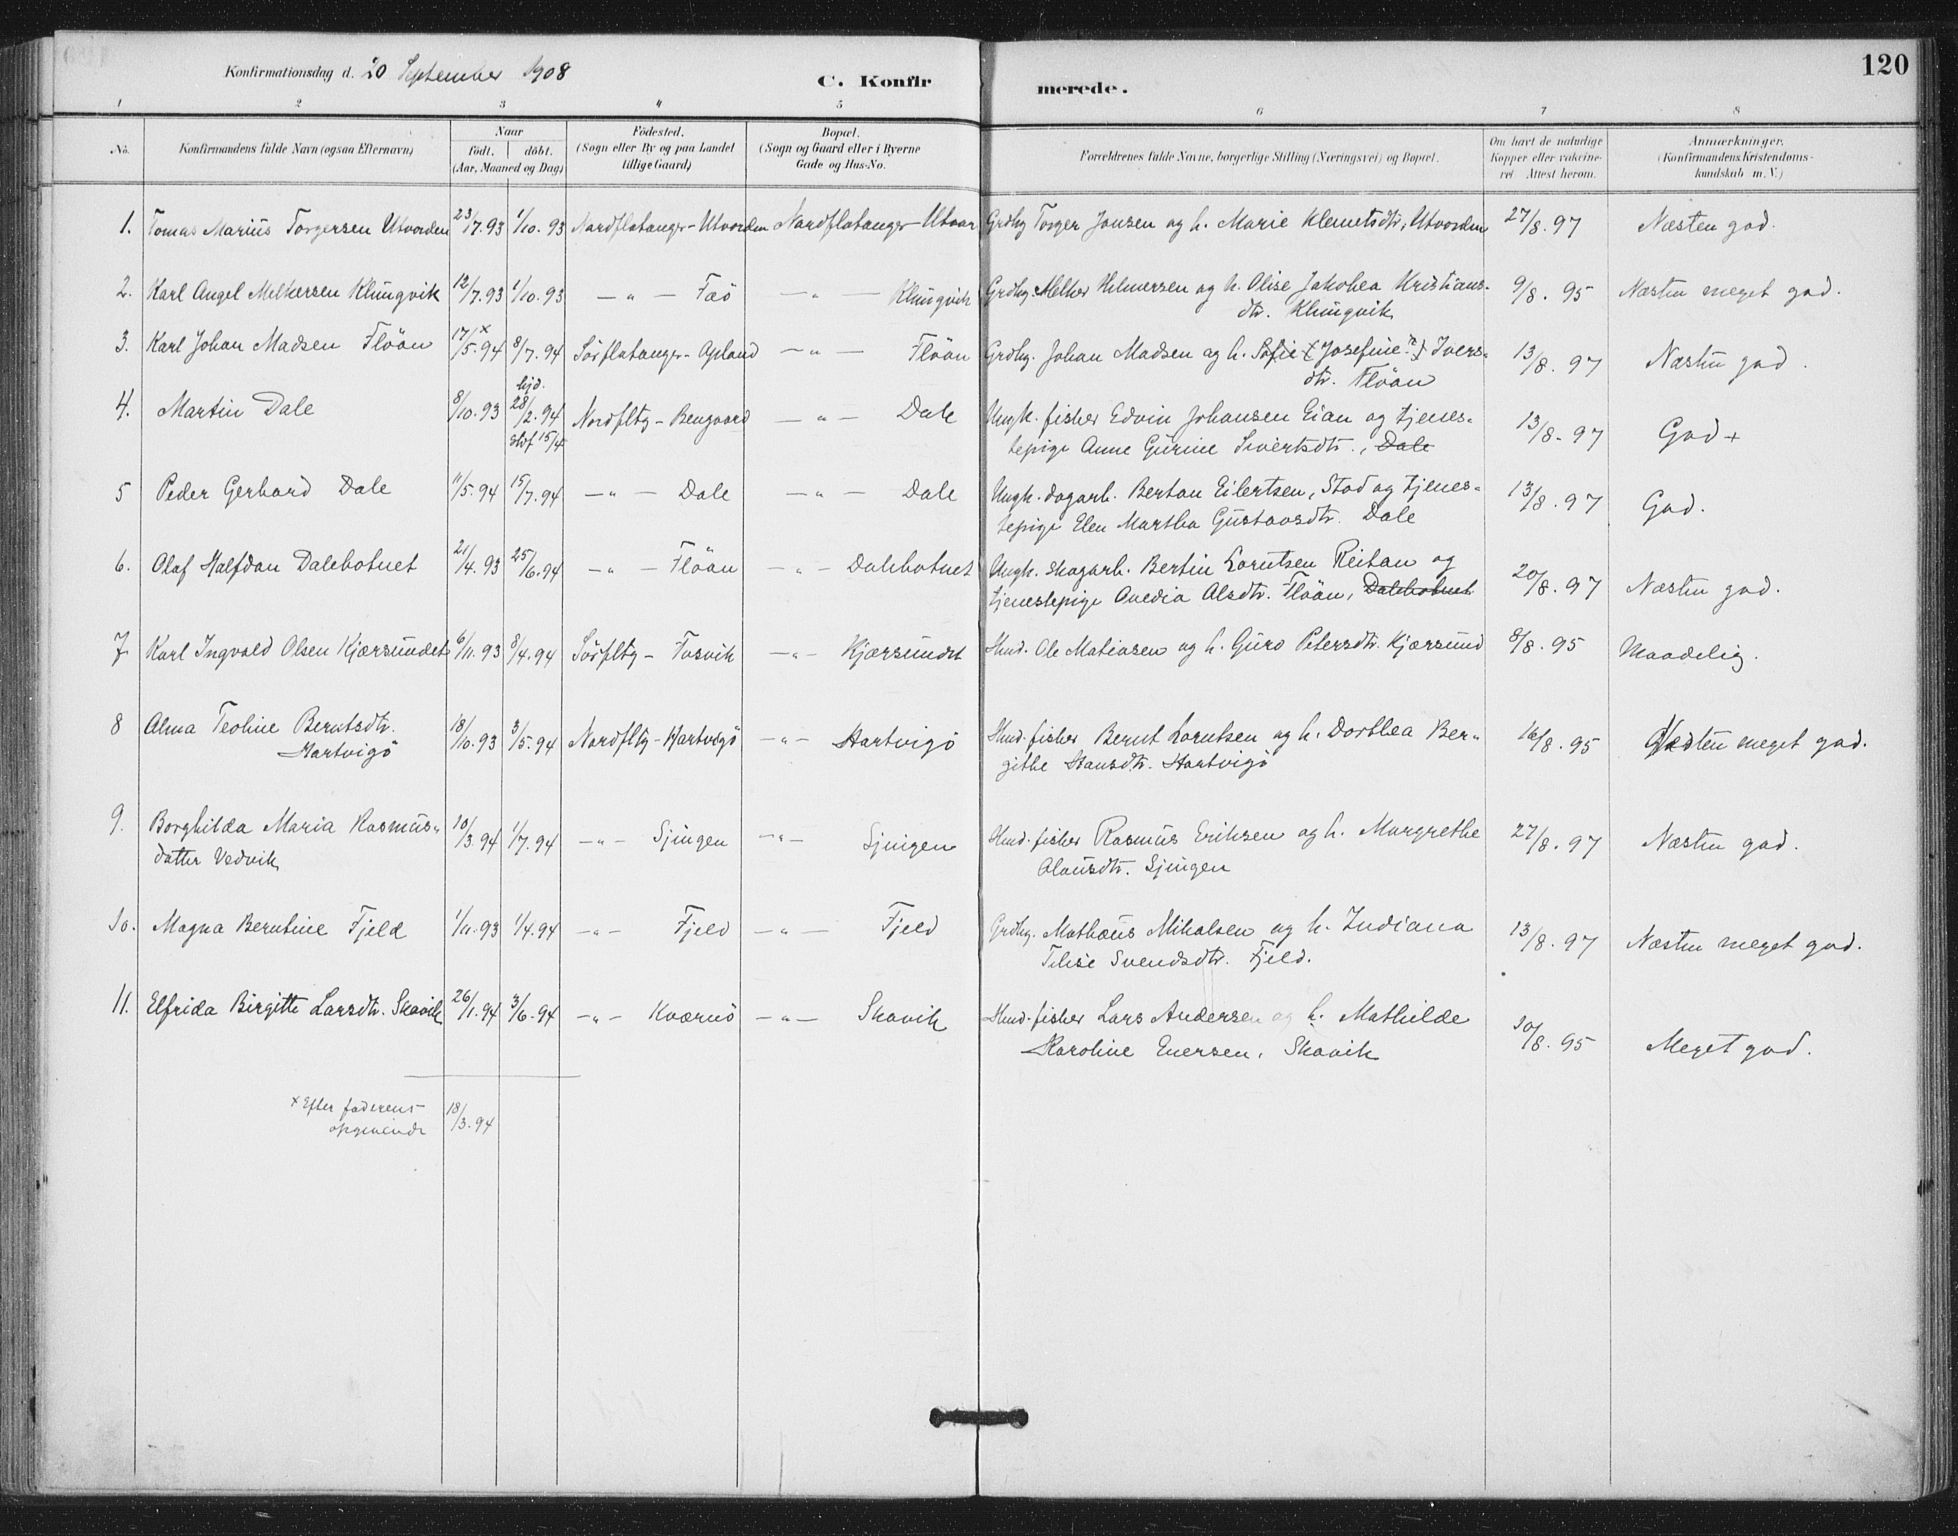 120
Konfirmationsdag d. 20 September 1908
C. Konfirmerede.
1 2 3 4 5 6 7 8
No. Konfirmandens fulde Navn (ogsaa Efternavn) Naar födt. döbt. (Aar, Maaned og Dag) Födested. (Sogn eller By og paa Landet tillige Gaard) Bopæl. (Sogn og Gaard eller i Byerne Gade og Hus-No. Forældrenes fulde Navne, borgerlige Stilling (Næringsvei) og Bopæl. Om havt de naturlige Kopper eller vakcineret Attest herom. Anmærkninger. (Konfirmandens Kristendomskundskab m. V.)
1. Tomas Marius Torgersen Utvorden 23/7.93 1/10.93 Nordflatanger - Utvorden Nordflatanger - Utvor Grdbg Torger Jonsen og h. Marie Klemetsdtr, Utvorden 27/8.97 Næsten god.
2. Karl Angel Melkersen Klungvik 12/7.93 1/10.93 — " — Faö — " — Klungvik Grdbg. Melker Hilmersen og h. Olise Jakobea Kristians-
dtr. Klungvik 9/8.95 Næsten meget god.
3. Karl Johan Madsen Flöan 17/5.94 x 8/7.94 Sörflatanger - Apland — " — Flöan Grdbg. Johan Madsen og h. Sofie (Josefine?) Ivers-
dtr. Flöan 13/8.97 Næsten god.
4. Martin Dale 8/10.93 hjd. 28/2.94 stdf 15/4 Nordfltg - Bengaard — " — Dale Ungk. fisker Edvin Johansen Eian og tjenes-
tepige Anne Gurine Sivertsdtr., Dale 13/8.97 God +
5 Peder Gerhard Dale 11/5.94 15/7.94 — " — Dale — " — Dale Ungk. dagarb. Bertan Eilertsen, Stod og tjenes-
tepige Elen Martha Gustavsdtr. Dale 13/8.97 God.
6. Olaf Halfdan Dalebotnet 21/4.93 25/6.94 — " — Flöan — " — Dalebotnet Ungk. skogarb. Bertin Lorntsen Reitan og
tjenestepige Ovedia Olsdtr. Flöan, Dalebotnet 20/8.97 Næsten god.
7 Karl Ingvald Olsen Kjærsundet 6/11.93 8/4.94 Sörfltg - Fosvik — " — Kjærsundet Hmd. Ole Matiasen og h. Guro Petersdtr. Kjærsund 8/8.95 Maadelig.
8 Alma Teoline Berntsdtr.
Hartvigö 18/10.93 3/5.94 Nordfltg - Hartvigö — " — Hartvigö Hmd. fisker Bernt Lorntsen og h. Dorthea Ber-
githe Hansdtr. Hartvigö 16/8.95 Næsten meget god.
9. Borghilda Maria Rasmus-
datter Vedvik 10/3.94 1/7.94 — " — Sjingen — " — Sjingen Hmd. fisker Rasmus Eriksen og h. Margrethe
Olausdtr. Sjingen 27/8.97 Næsten god.
10. Magna Berntine Fjeld 1/11.93 1/4.94 — " — Fjeld — " — Fjeld Grdbg. Mathæus Mikalsen og h. Indiana
Telise Svendsdtr. Fjeld. 13/8.97 Næsten meget god.
11. Elfrida Birgitte Larsdtr. Skavik 26/1.94 3/6.94 — " — Kværnö — " — Skavik Hmd. fisker Lars Andersen og h. Mathilde
Karoline Enersen, Skavik 10/8.95 Meget god.
x Efter faderens
opgivende 18/3.94